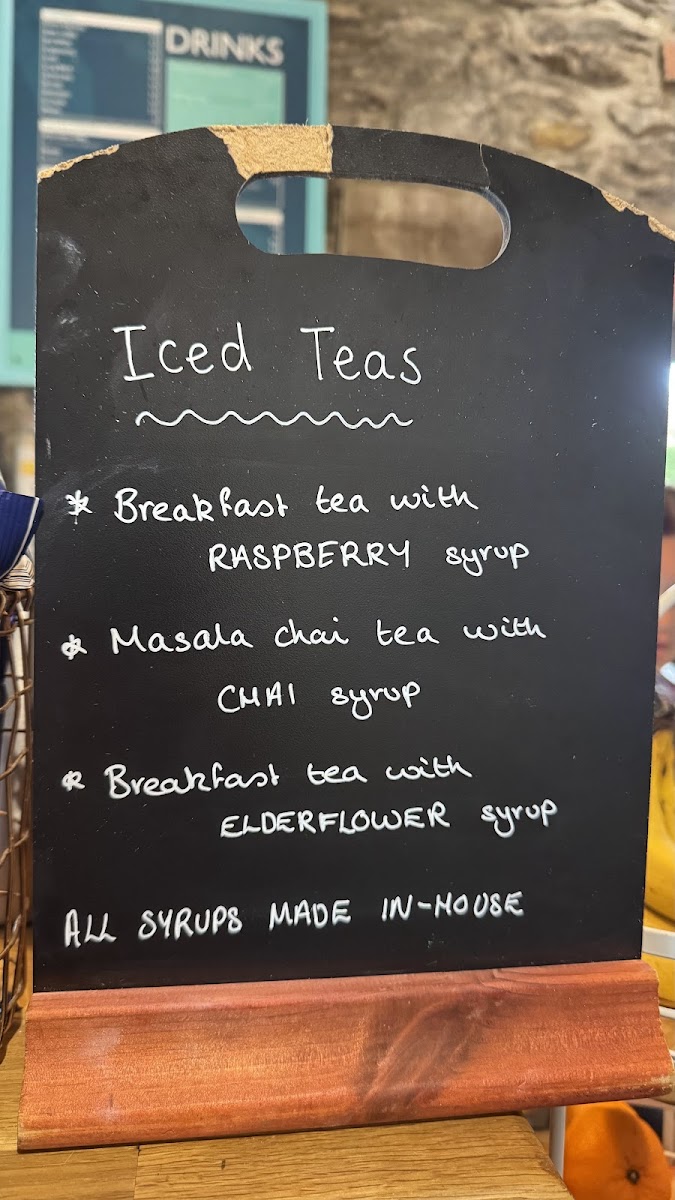 DRINKS
Iced Teas
* Breakfast tea with
RASPBERRY syrup
* Masala chai tea with
CHAI syrup
* Breakfast tea with
ELDERFLOWER syrup
ALL SYRUPS MADE IN-HOUSE